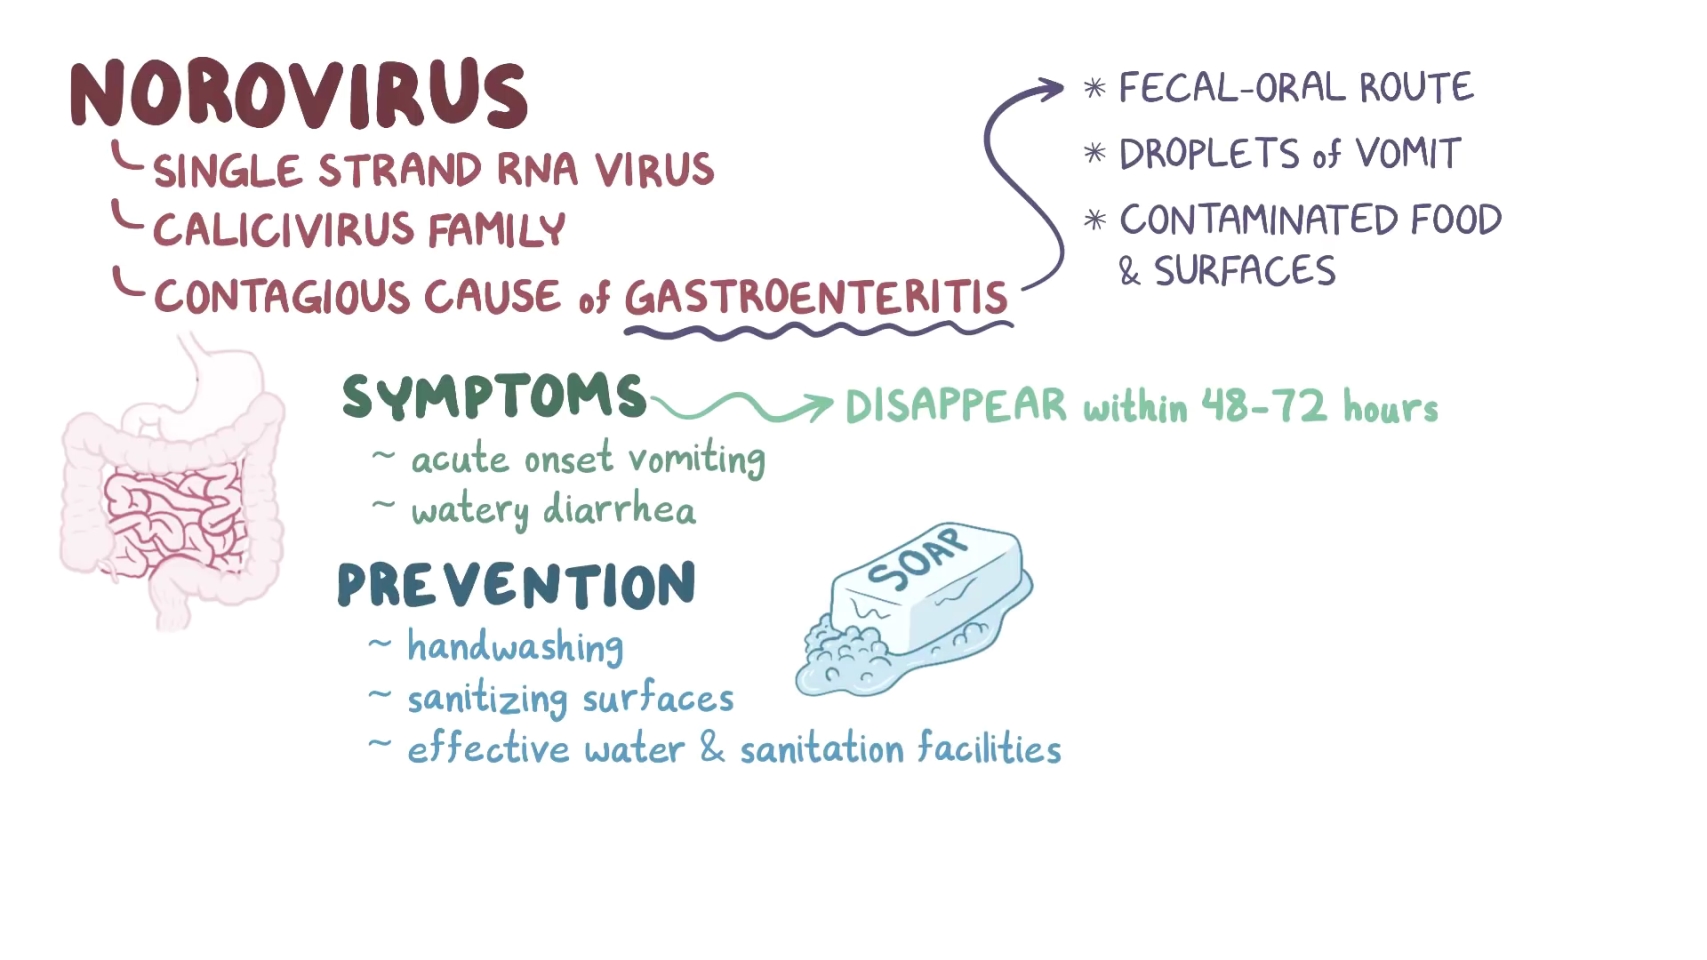 NOROVIRUS
SINGLE STRAND RNA VIRUS
CALICIVIRUS FAMILY
CONTAGIOUS CAUSE of GASTROENTERITIS
* FECAL-ORAL ROUTE
* DROPLETS of VOMIT
* CONTAMINATED FOOD
& SURFACES
SYMPTOMS
DISAPPEAR within 48-72 hours
~ acute onset vomiting
~ watery diarrhea
PREVENTION
~ handwashing
~ sanitizing surfaces
~ effective water & sanitation facilities
SOAP